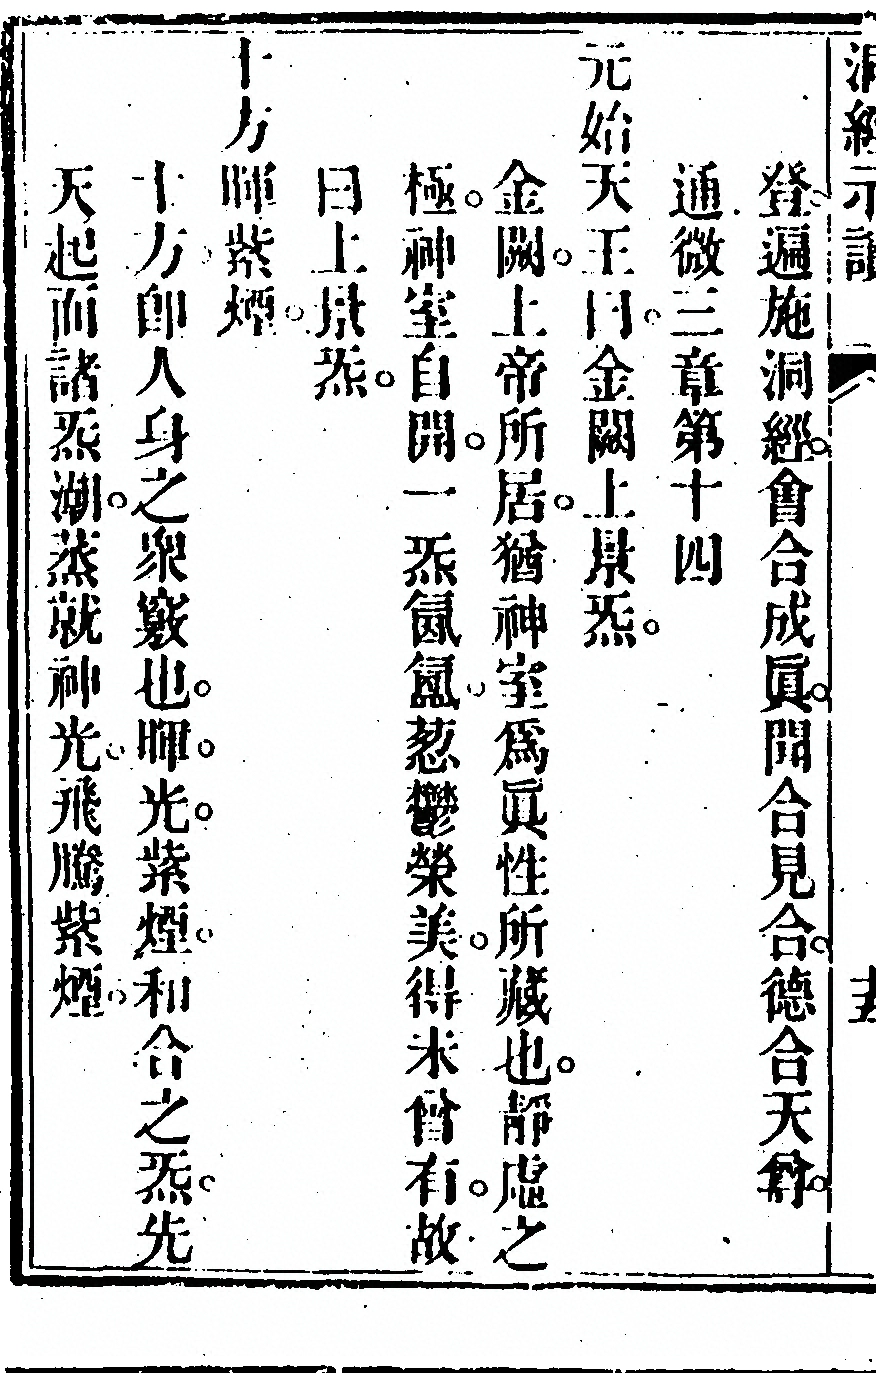 洞經示讀 十五
登遍施洞經會合成眞開合見合德合天爵
通微三章第十四
元始天王曰金闕上景炁
金闕上帝所居猶神室爲眞性所藏也靜虛之
極神室自開一炁氤氳葱鬱榮美得未曾有故
曰上景炁
十方暉紫煙
十方卽人身之衆竅也暉光紫煙和合之炁先
天起而諸炁潮蒸就神光飛騰紫煙